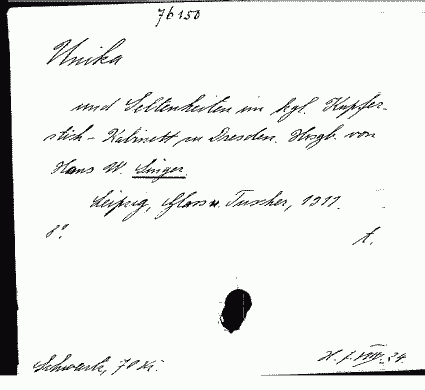 76150
Unika
und Seltenheiten im kgl. Kupfer-
stich-Kabinett zu Dresden. Hrsgb. von
Hans W. Singer.
Leipzig, Glass u. Tuscher, 1911.
8°.
t.
Schwark, 70
H. f. VIII. 34